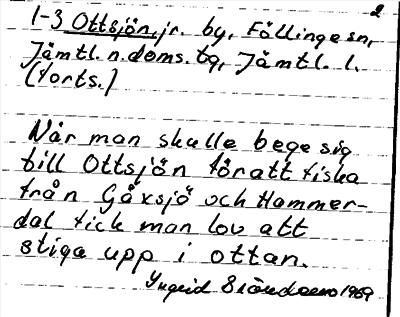 2
1-3 Ottsjön, jr. by, Föllinge sn,
Jämtl. n. doms. tg, Jämtl. l.
(forts.)
När man skulle bege sig
till Ottsjön för att fiska
från Gåxsjö och Hammer-
dal fick man lov att
stiga upp i ottan.
Ingrid 1969